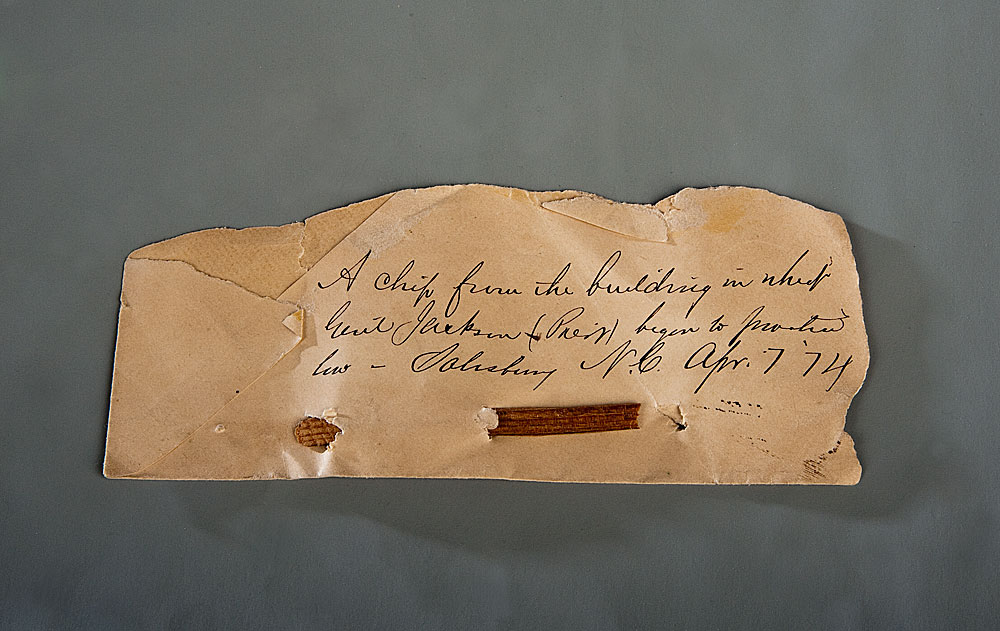 A chip from the building in which
Genl Jackson (Prest) began to practice
law - Salisbury N.C. Apr. 7 '74